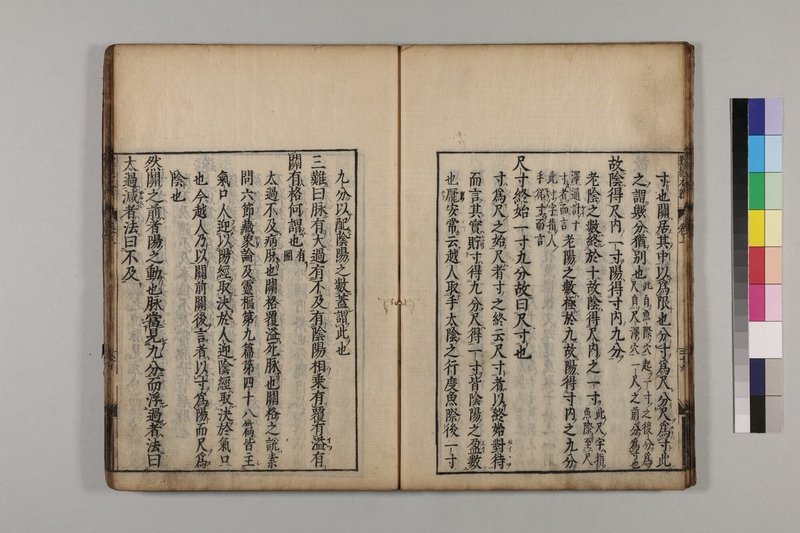 寸也關居其中以爲限也分寸爲尺分尺爲寸此
之謂與分猶別也此自魚際穴起一寸之後分爲尺自尺澤穴一尺之前分爲寸也
故陰得尺內一寸陽得寸內九分
老陰之數終於十故陰得尺內之一寸此尺字指魚際至尺
澤通計十寸者而言老陽之數極於九故陽得寸內之九分
此寸字指人手卻寸而言
尺寸終始一寸九分故曰尺寸也
寸爲尺之始尺者寸之終云尺寸者以終始對待
而言其實則寸得九分尺得一寸皆陰陽之盈數
也龐安常云越人取手太陰之行度魚際後一寸
九分以配陰陽之數蓋謂此也
三難曰脉有太過有不及有陰陽相乘有覆有溢有
關有格何謂也
有圖
太過不及病脉也關格覆溢死脉也關格之說素
問六節藏象論及靈樞第九篇第四十八篇皆主
氣口人迎以陽經取決於人迎陰經取決於氣口
也今越人乃以關前關後言者以寸爲陽而尺爲
陰也
然關之前者陽之動也脉當見九分而浮過者法曰
太過減者法曰不及